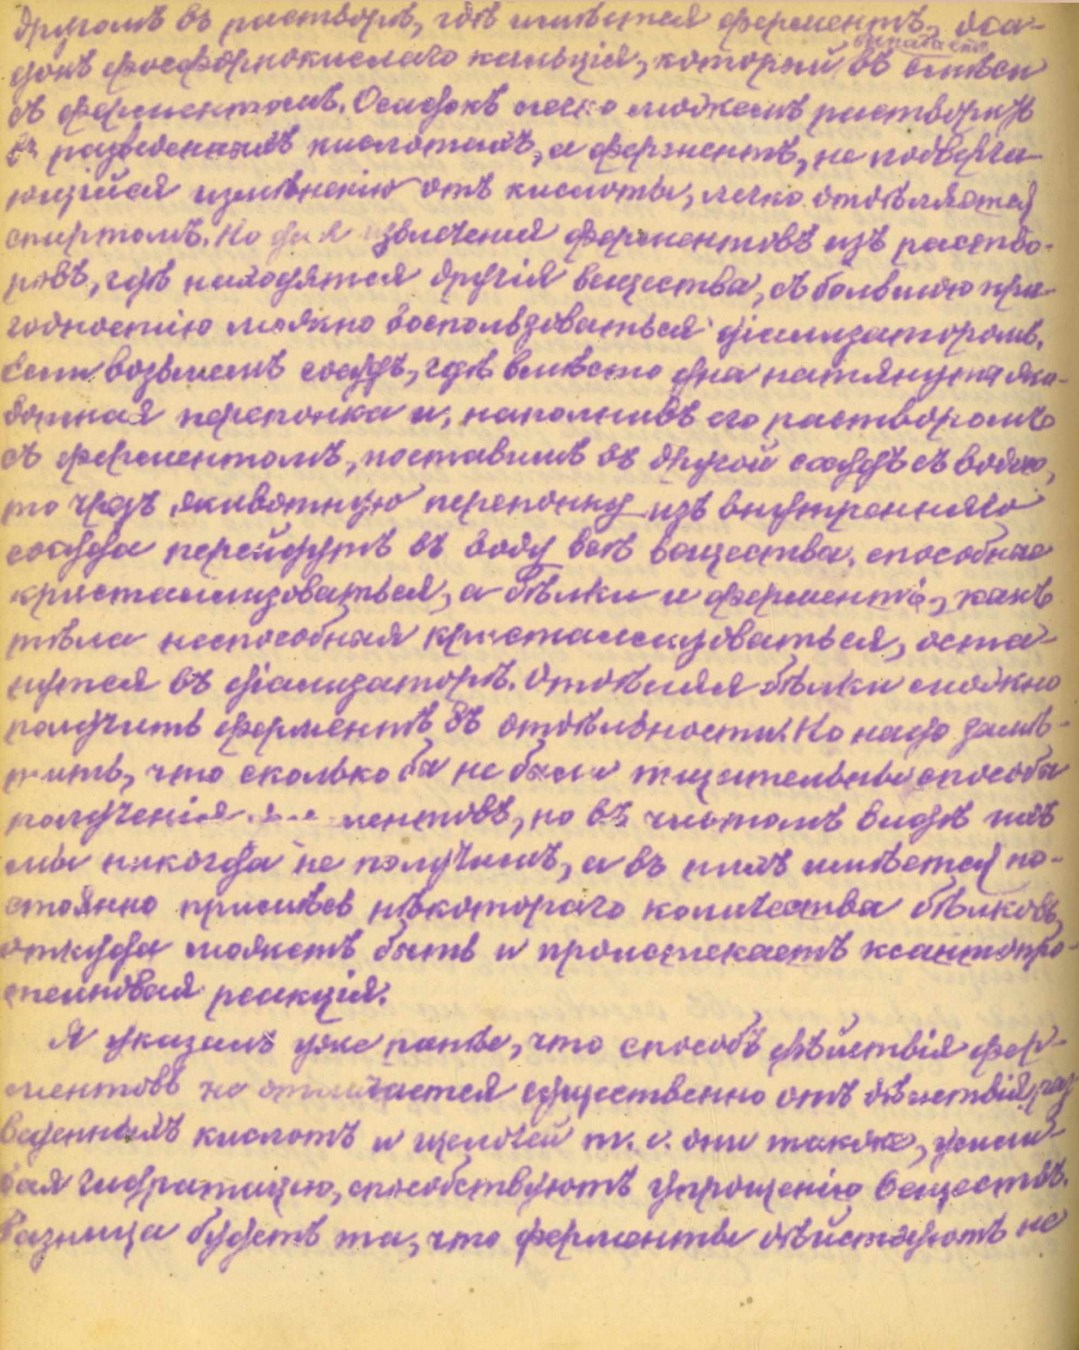 другомъ въ растворѣ, гдѣ имѣется ферментъ, оса-
докъ фосфорнокислаго кальція, который въ смѣси
съ ферментомъ. Осадокъ легко можемъ растворить
въ разведенныхъ кислотахъ, а ферментъ, не подверга-
ющійся измѣненію отъ кислоты, легко отдѣляется
спиртомъ. Но для извлеченія ферментовъ изъ раство-
ровъ, гдѣ находятся другія вещества, съ большою при-
годностію можно воспользоваться діализаторомъ.
Если возьмемъ сосудъ, гдѣ вмѣсто дна натянута жи-
вотная перепонка и, наполнивъ его растворомъ
съ ферментомъ, поставимъ въ другой сосудъ съ водою,
то чрезъ животную перепонку изъ внутренняго
сосуда перейдутъ въ воду всѣ вещества, способныя
кристаллизоваться, а бѣлки и ферменты, какъ
тѣла неспособныя кристаллизоваться, оста-
нутся въ діализаторѣ. Отдѣляя бѣлки можно
получить ферментъ въ отдѣльности. Но надо замѣ-
тить, что сколько бы не были тщательны способы
полученія ментовъ, но въ чистомъ видѣ ихъ
мы никогда не получимъ, а въ нихъ имѣется по-
стоянно примѣсь нѣкотораго количества бѣлковъ,
откуда можетъ быть и проистекаетъ ксантопро-
теиновая реакція.
Я указалъ уже ранѣе, что способъ дѣйствія фер-
ментовъ не отличается существенно отъ дѣйствія раз-
веденныхъ кислотъ и щелочей т. е. они также, усили-
вая гидратацію, способствуютъ упрощенію веществъ.
Разница будетъ та, что ферменты дѣйствуютъ не